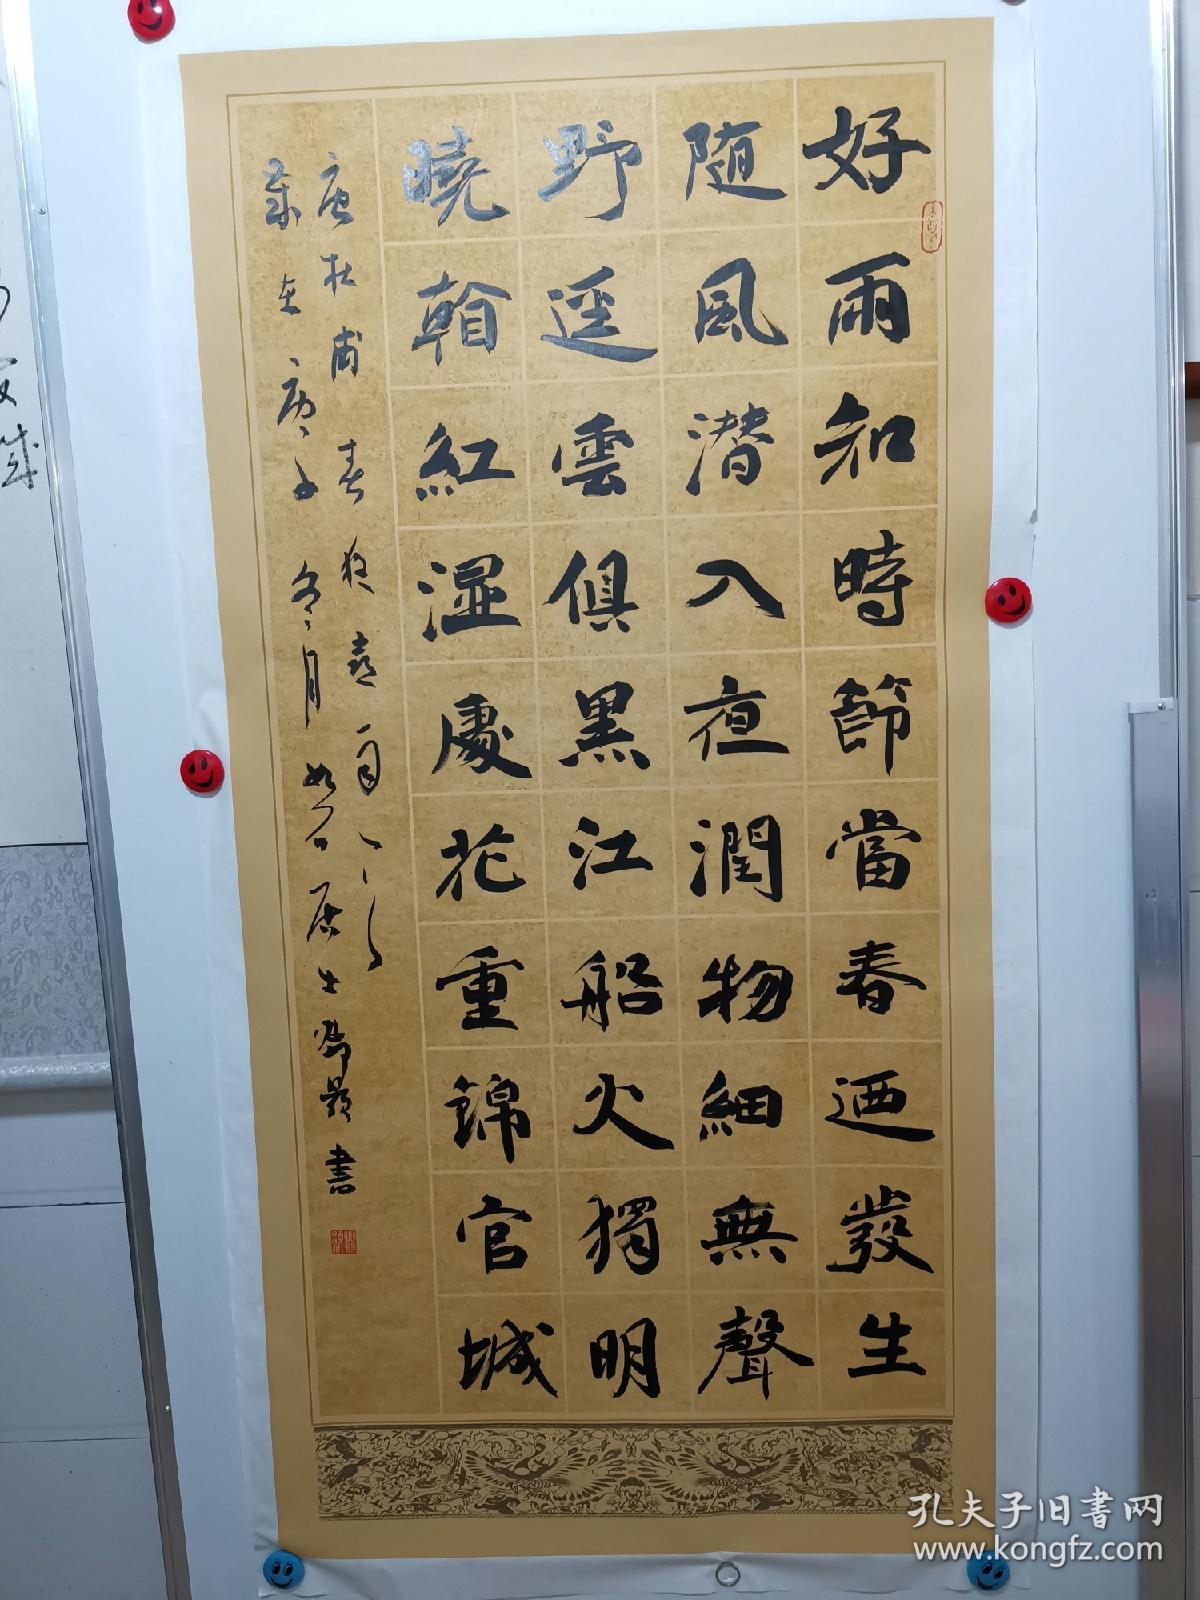 好雨知時節當春迺發生
随風潜入夜潤物細無聲
野逕雲俱黑江船火獨明
曉看紅湿處花重錦官城
唐杜甫春夜喜雨
歲在庚子冬月居士書
孔夫子旧书网
www.kongfz.com